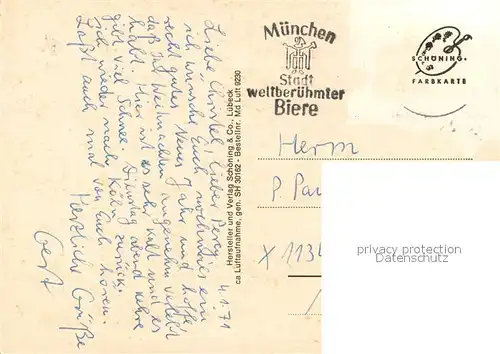 4.1.71
Liebe Christel, lieber Percy,
ich wünsche Euch nochmals ein
recht gutes Neues Jahr und hoffe,
daß Ihr Weihnachten angenehm verlebt
habt. Hier ist es sehr kalt und es
gibt viel Schnee. Dienstag abend fahre
ich wieder nach Köln zurück.
Laßt auch mal von Euch hören.
Herzliche Grüße
Gert
Hersteller und Verlag Schöning & Co., Lübeck
ca Luftaufnahme, gen. SH 30162 - Bestellnr. Md Luft 9230
München
Stadt
weltberühmter
Biere
SCHÖNING
FARBKARTE
Herrn
P. Pau
X 1134
privacy protection
Datenschutz